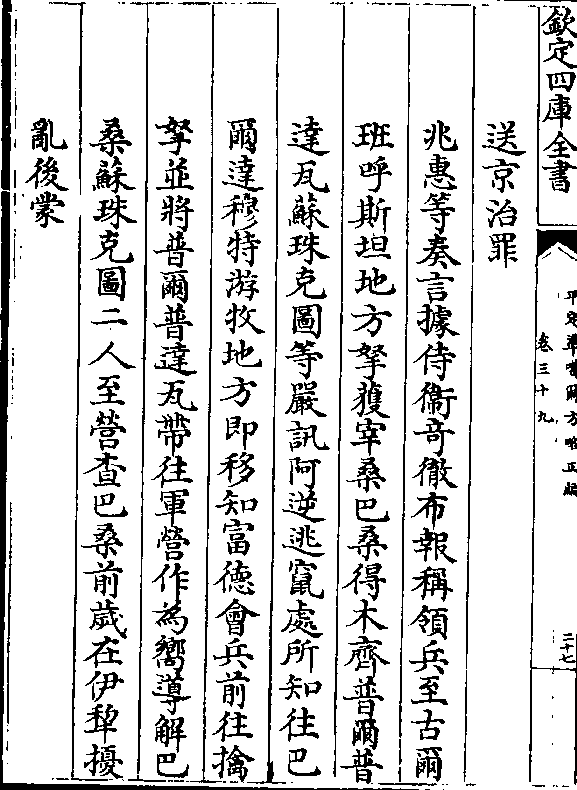 欽定四庫全書
平定準噶爾方略正編
卷三十九
二十七
送京治罪
兆惠等奏言據侍衞竒徹布報稱領兵至古爾
班呼斯坦地方拏獲宰桑巴桑得木齊普爾普
達瓦蘇珠克圖等嚴訊阿逆逃竄處所知往巴
爾達穆特游牧地方即移知富德會兵前往擒
拏並將普爾普達瓦帶往軍營作為嚮導解巴
桑蘇珠克圖二人至營查巴桑前歲在伊犂擾
亂後蒙